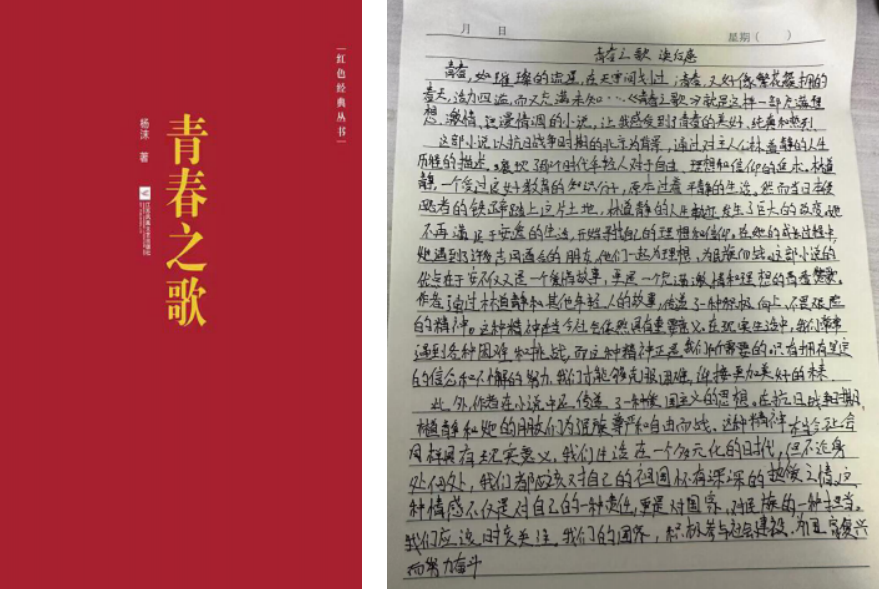 红色经典丛书
青春之歌
杨沫 著
江苏凤凰文艺出版社
月 日
星期( )
青春之歌 读后感
青春,如璀璨的流星,在天空间划过,青春,又好像繁花簇拥的
春天,活力四溢,而又充满未知…《青春之歌》就是这样一部充满理
想、激情、浪漫情调的小说,让我感受到了青春的美好、纯真和热烈.
这部小说以抗日战争时期的北京为背景,通过对主人公林道静的人生
历程的描述,展现了那个时代年轻人对于自由、理想和信仰的追求。林道
静,一个受过良好教育的知识分子,原本过着平静的生活,然而当日本侵
略者的铁蹄踏上这片土地,林道静的人生轨迹发生了巨大的改变,她
不再满足于安逸的生活,开始寻找自己的理想和信仰。在她的成长过程中,
她遇到了许多志同道合的朋友,他们一起为理想,为民族而战。这部小说的
优点在于它不仅仅是一个爱情故事,更是一个充满激情和理想的青春赞歌。
作者通过林道静和其他年轻人的故事,传递了一种积极向上、不畏艰险
的精神。这种精神在当今社会依然具有重要意义。在现实生活中,我们常常
遇到各种困难和挑战,而这种精神正是我们所需要的。只有拥有坚定
的信念和不懈的努力,我们才能够克服困难,迎接更加美好的未来.
此外,作者在小说中还传递了一种爱国主义的思想。在抗日战争时期,
林道静和她的朋友们为民族尊严和自由而战。这种精神在当今社会
同样具有现实意义,我们生活在一个多元化的时代,但不论身
处何处,我们都应该对自己的祖国怀有深深的热爱之情。这
种情感不仅是对自己的一种责任,更是对国家、对民族的一种担当。
我们应该时刻关注我们的国家,积极参与社会建设,为国家复兴
而努力奋斗